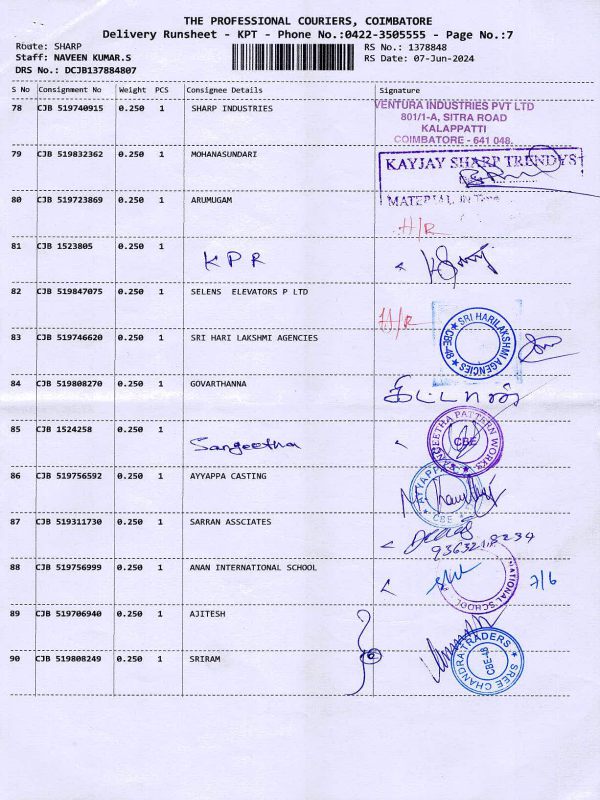 THE PROFESSIONAL COURIERS, COIMBATORE
Delivery Runsheet - KPT - Phone No.:0422-3505555 - Page No.:7
Route: SHARP
RS No.: 1378848
Staff: NAVEEN KUMAR.S
RS Date: 07-Jun-2024
DRS No.: DCJB137884807
S No Consignment No Weight PCS Consignee Details Signature
78 CJB 519740915 0.250 1 SHARP INDUSTRIES
VENTURA INDUSTRIES PVT LTD
801/1-A, SITRA ROAD
KALAPPATTI
COIMBATORE - 641 048.
79 CJB 519832362 0.250 1 MOHANASUNDARI
KAYJAY SHARP TRENDYS
80 CJB 519723869 0.250 1 ARUMUGAM
MATERIAL IN Time
H/R
81 CJB 1523805 0.250 1
KPR
82 CJB 519847075 0.250 1 SELENS ELEVATORS P LTD
H/R
83 CJB 519746620 0.250 1 SRI HARI LAKSHMI AGENCIES
★ SRI HARILAKSHMI AGENCIES ★ CBE-48
84 CJB 519808270 0.250 1 GOVARTHANNA
85 CJB 1524258 0.250 1
Sangeetha
SANGEETHA PATTERN WORKS ★ CBE
86 CJB 519756592 0.250 1 AYYAPPA CASTING
AYYAPPA
★ CBE ★
87 CJB 519311730 0.250 1 SARRAN ASSCIATES
88 CJB 519756999 0.250 1 ANAN INTERNATIONAL SCHOOL
NATIONAL SCHOOL
7/6
89 CJB 519706940 0.250 1 AJITESH
90 CJB 519808249 0.250 1 SRIRAM
★ SREE CHANDRA TRADERS ★ CBE-48